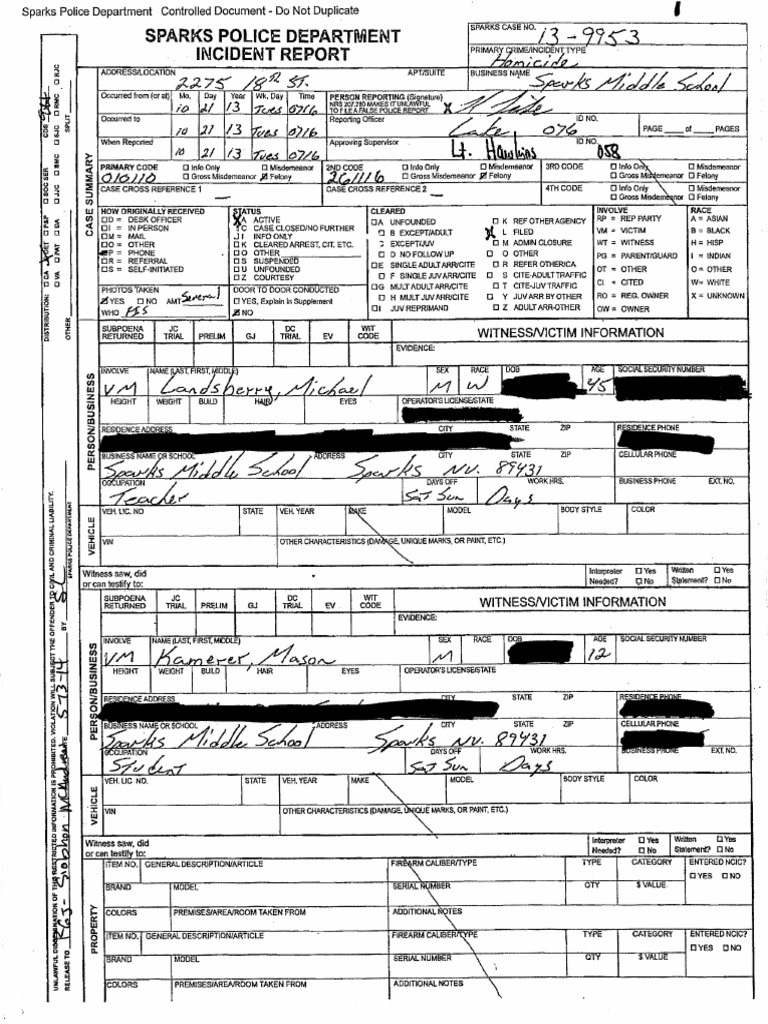 Sparks Police Department Controlled Document - Do Not Duplicate
1
SPARKS POLICE DEPARTMENT
INCIDENT REPORT
SPARKS CASE NO.
13-9953
PRIMARY CRIME/INCIDENT TYPE
Homicide
ADDRESS/LOCATION APT/SUITE BUSINESS NAME
2275 18th ST. Sparks Middle School
Occurred from (or at) Mo. Day Year Wk. Day Time
10 21 13 Tues 0716
PERSON REPORTING (Signature)
NRS 207.280 MAKES IT UNLAWFUL
TO FILE A FALSE POLICE REPORT
X
Occurred to
10 21 13 Tues 0716
Reporting Officer ID NO.
Lake 076
PAGE of PAGES
When Reported
10 21 13 Tues 0716
Approving Supervisor ID NO.
Lt. Hawkins 058
PRIMARY CODE Info Only Misdemeanor
Gross Misdemeanor Felony
010110
2ND CODE Info Only Misdemeanor
Gross Misdemeanor Felony
261116
3RD CODE Info Only Misdemeanor
Gross Misdemeanor Felony
CASE CROSS REFERENCE 1
CASE CROSS REFERENCE 2
4TH CODE Info Only Misdemeanor
Gross Misdemeanor Felony
CASE SUMMARY
HOW ORIGINALLY RECEIVED
D = DESK OFFICER
I = IN PERSON
M = MAIL
O = OTHER
P = PHONE
R = REFERRAL
S = SELF-INITIATED
STATUS
A ACTIVE
C CASE CLOSED/NO FURTHER
I INFO ONLY
K CLEARED ARREST, CIT. ETC.
O OTHER
S SUSPENDED
U UNFOUNDED
Z COURTESY
CLEARED
A UNFOUNDED
B EXCEPT/ADULT
C EXCEPT/JUV
D NO FOLLOW UP
E SINGLE ADULT ARR/CITE
F SINGLE JUV ARR/CITE
G MULT ADULT ARR/CITE
H MULT JUV ARR/CITE
I JUV REPRIMAND
K REF OTHER AGENCY
L FILED
M ADMIN CLOSURE
O OTHER
R REFER OTHER/CA
S CITE-ADULT TRAFFIC
T CITE-JUV TRAFFIC
Y JUV ARR BY OTHER
Z ADULT ARR-OTHER
INVOLVE
RP = REP PARTY
VM = VICTIM
WT = WITNESS
PG = PARENT/GUARD
OT = OTHER
CI = CITED
RO = REG. OWNER
OW = OWNER
RACE
A = ASIAN
B = BLACK
H = HISP
I = INDIAN
O = OTHER
W = WHITE
X = UNKNOWN
PHOTOS TAKEN
YES NO AMT Several
WHO FIS
DOOR TO DOOR CONDUCTED
YES, Explain in Supplement
NO
SUBPOENA RETURNED JC TRIAL PRELIM GJ DC TRIAL EV WIT CODE
WITNESS/VICTIM INFORMATION
EVIDENCE:
INVOLVE NAME (LAST, FIRST, MIDDLE) SEX RACE DOB AGE SOCIAL SECURITY NUMBER
VM Landsberry, Michael M W 45
HEIGHT WEIGHT BUILD HAIR EYES OPERATOR'S LICENSE/STATE
RESIDENCE ADDRESS CITY STATE ZIP RESIDENCE PHONE
BUSINESS NAME OR SCHOOL ADDRESS CITY STATE ZIP CELLULAR PHONE
Sparks Middle School Sparks NV. 89431
OCCUPATION DAYS OFF WORK HRS. BUSINESS PHONE EXT. NO.
Teacher Sat Sun Days
PERSON/BUSINESS
VEH. LIC. NO STATE VEH. YEAR MAKE MODEL BODY STYLE COLOR
VIN OTHER CHARACTERISTICS (DAMAGE, UNIQUE MARKS, OR PAINT, ETC.)
VEHICLE
Witness saw, did
or can testify to:
Interpreter Needed? Yes No
Written Statement? Yes No
SUBPOENA RETURNED JC TRIAL PRELIM GJ DC TRIAL EV WIT CODE
WITNESS/VICTIM INFORMATION
EVIDENCE:
INVOLVE NAME (LAST, FIRST, MIDDLE) SEX RACE DOB AGE SOCIAL SECURITY NUMBER
VM Kamerer, Mason M 12
HEIGHT WEIGHT BUILD HAIR EYES OPERATOR'S LICENSE/STATE
RESIDENCE ADDRESS CITY STATE ZIP RESIDENCE PHONE
BUSINESS NAME OR SCHOOL ADDRESS CITY STATE ZIP CELLULAR PHONE
Sparks Middle School Sparks NV. 89431
OCCUPATION DAYS OFF WORK HRS. BUSINESS PHONE EXT. NO.
Student Sat Sun Days
PERSON/BUSINESS
VEH. LIC. NO. STATE VEH. YEAR MAKE MODEL BODY STYLE COLOR
VIN OTHER CHARACTERISTICS (DAMAGE, UNIQUE MARKS, OR PAINT, ETC.)
VEHICLE
Witness saw, did
or can testify to:
Interpreter Needed? Yes No
Written Statement? Yes No
ITEM NO. GENERAL DESCRIPTION/ARTICLE FIREARM CALIBER/TYPE TYPE CATEGORY ENTERED NCIC?
YES NO
BRAND MODEL SERIAL NUMBER QTY $ VALUE
COLORS PREMISES/AREA/ROOM TAKEN FROM ADDITIONAL NOTES
ITEM NO. GENERAL DESCRIPTION/ARTICLE FIREARM CALIBER/TYPE TYPE CATEGORY ENTERED NCIC?
YES NO
BRAND MODEL SERIAL NUMBER QTY $ VALUE
COLORS PREMISES/AREA/ROOM TAKEN FROM ADDITIONAL NOTES
PROPERTY
DISTRIBUTION: DA DET P&P SOC SER
VA PAT DA JJC SMC SJC RMC RJC
OTHER SPLIT
UNLAWFUL DISSEMINATION OF THIS RESTRICTED INFORMATION IS PROHIBITED. VIOLATION WILL SUBJECT THE OFFENDER TO CIVIL AND CRIMINAL LIABILITY.
RELEASE TO RGJ- Siobhan McAndrew DATE 5-13-14 BY SL
SPARKS POLICE DEPARTMENT